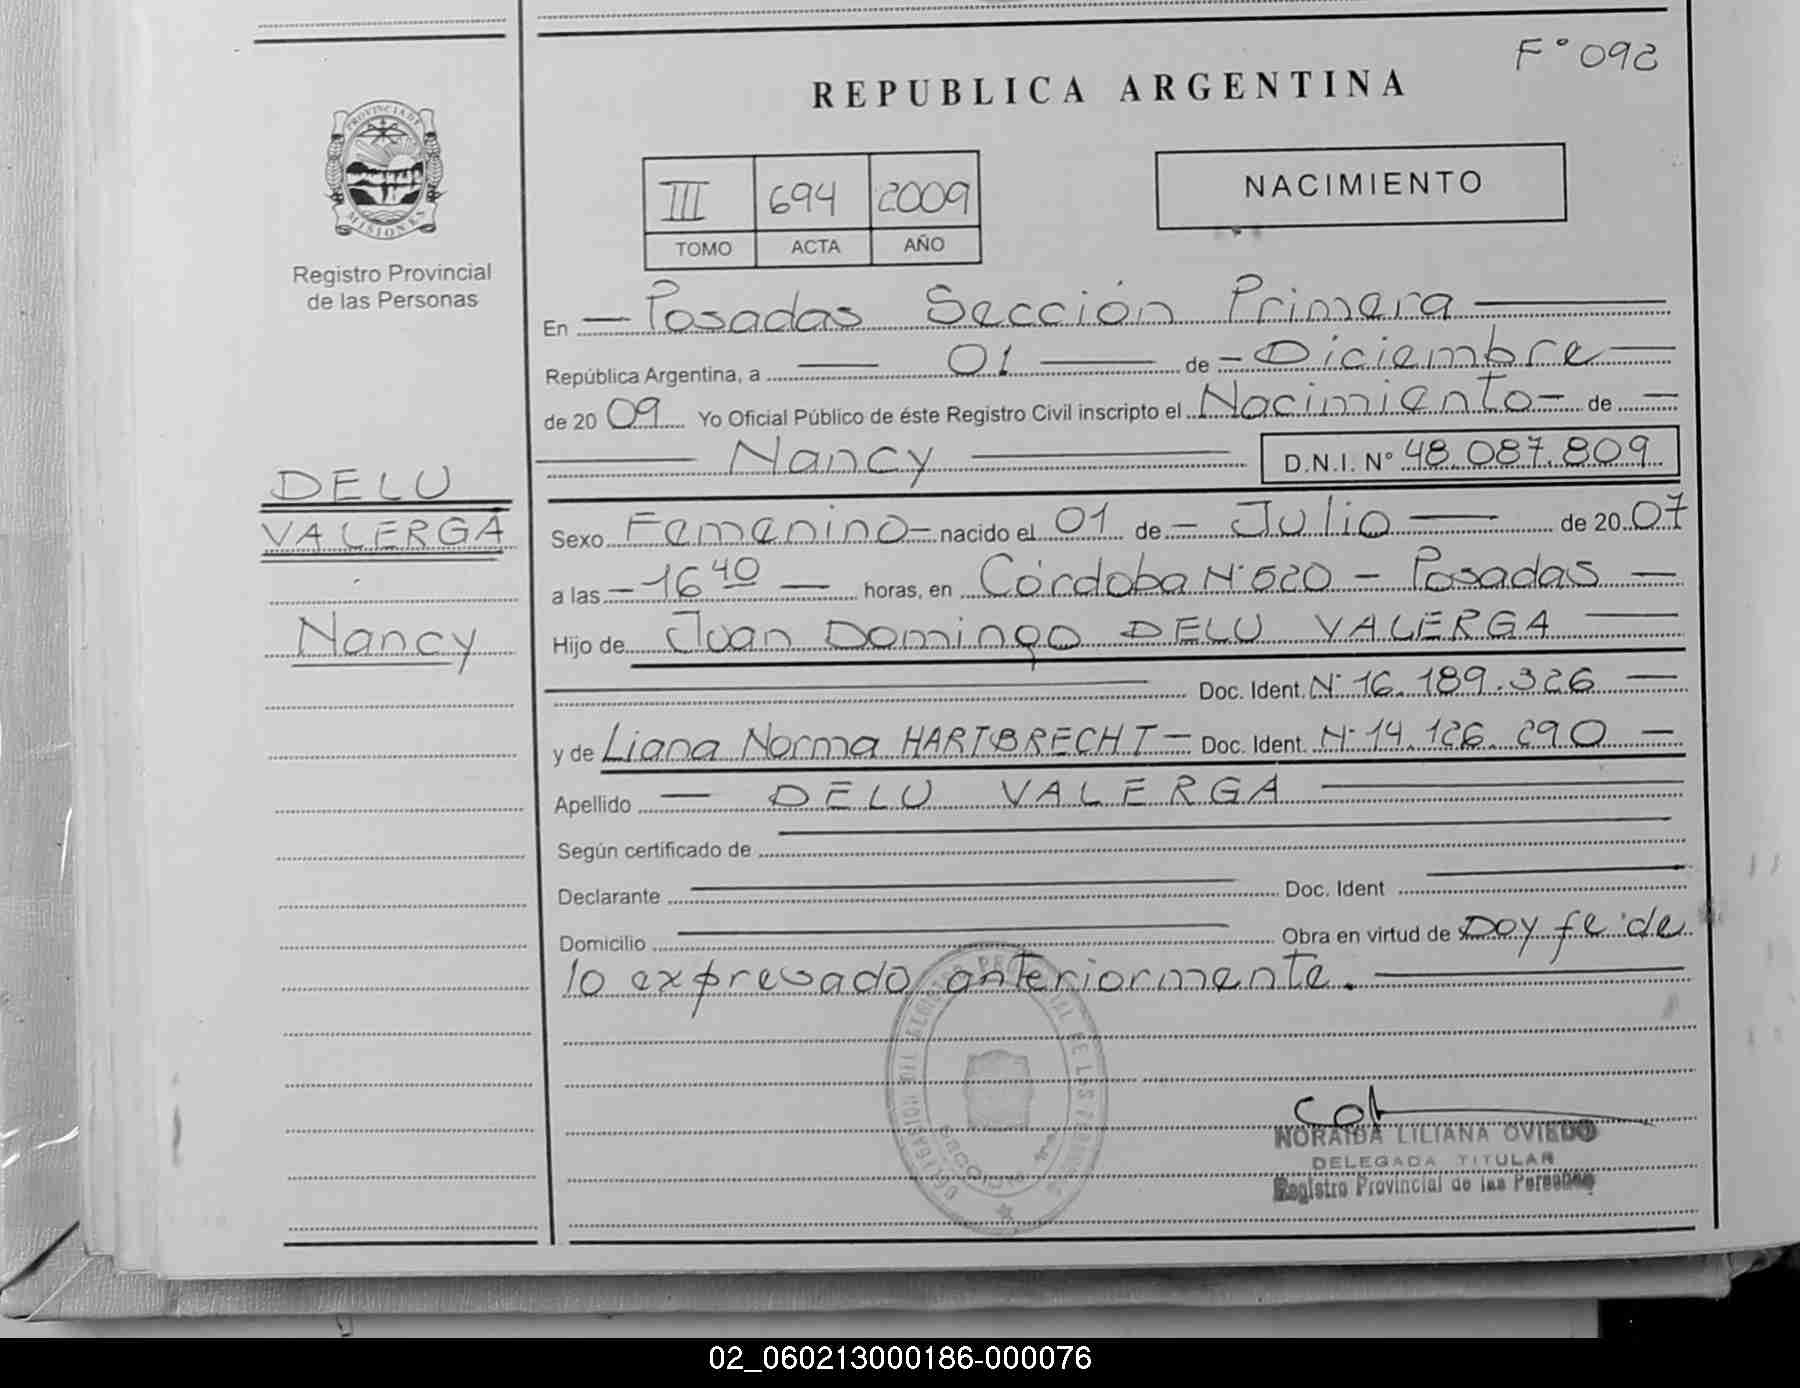 F° 092
REPUBLICA ARGENTINA
PROVINCIA DE MISIONES
Registro Provincial
de las Personas
III 694 2009
TOMO ACTA AÑO
NACIMIENTO
En Posadas Sección Primera
República Argentina, a 01 de Diciembre
de 20 09 Yo Oficial Público de éste Registro Civil inscripto el Nacimiento de
Nancy D.N.I. N° 48.087.809
DELU
VALERGA
Nancy
Sexo Femenino nacido el 01 de Julio de 20 07
a las 16 40 horas, en Córdoba N° 520 - Posadas
Hijo de Juan Domingo DELU VALERGA
Doc. Ident. N° 16.189.326
y de Liana Norma HARTBRECHT Doc. Ident. N° 14.126.290
Apellido DELU VALERGA
Según certificado de
Declarante Doc. Ident
Domicilio Obra en virtud de Doy fe de
lo expresado anteriormente.
NORAIDA LILIANA OVIEDO
DELEGADA TITULAR
Registro Provincial de las Personas
02_060213000186-000076